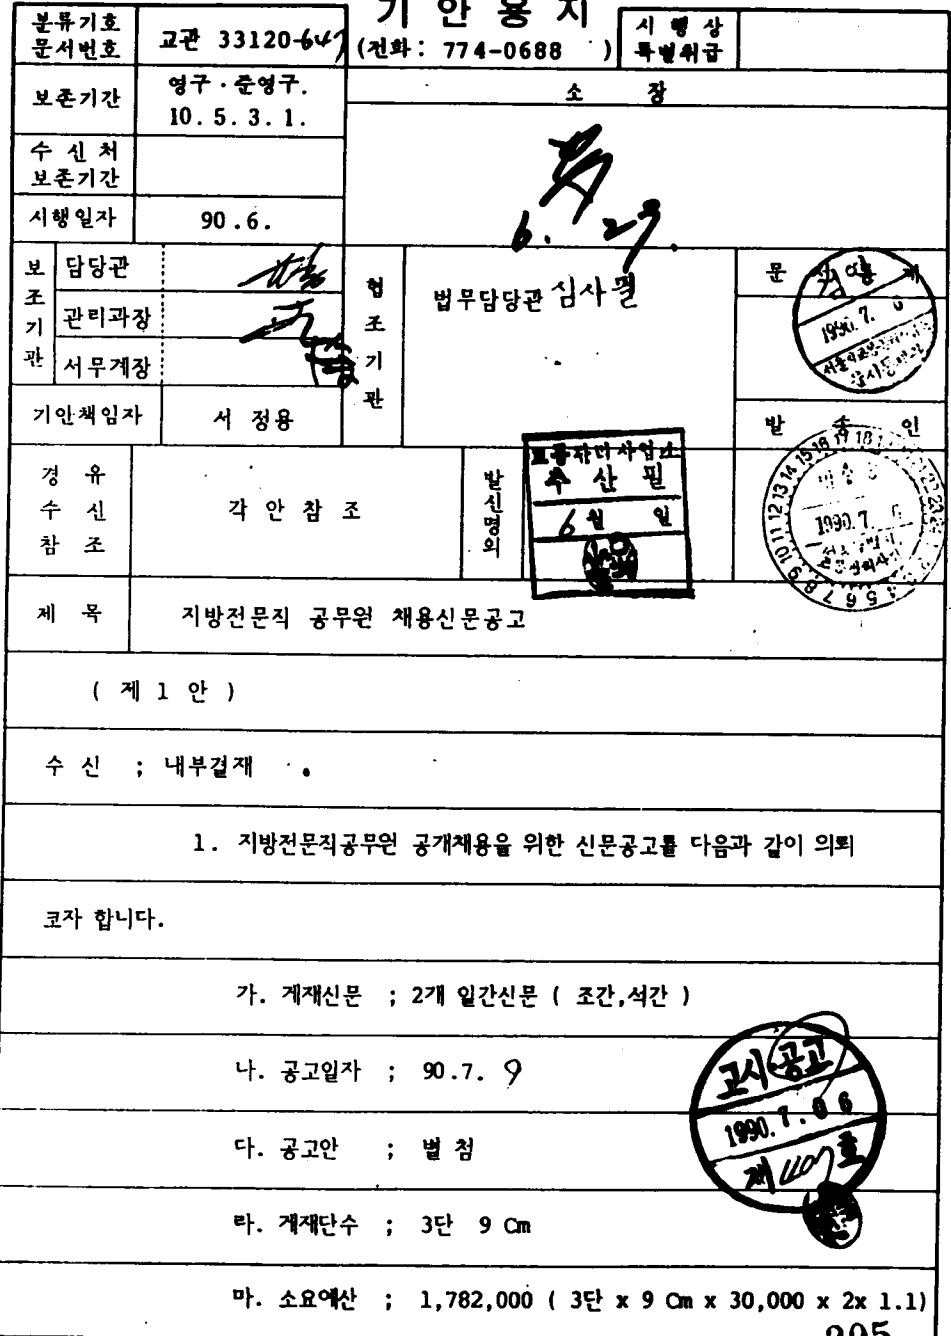 기 안 용 지
분류기호
문서번호
교관 33120-647
(전화: 774-0688 )
시 행 상
특별취급
보존기간
영구·준영구.
10. 5. 3. 1.
소 장
수 신 처
보존기간
6. 27.
시행일자
90.6.
보조기관
담당관
관리과장
서무계장
협조기관
법무담당관 심사필
문
1990.7. 6
기안책임자
서 정용
발 송 인
경 유
수 신
참 조
각 안 참 조
발신명의
필
6월 일
1990.7. 6
제 목
지방전문직 공무원 채용신문공고
( 제 1 안 )
수 신 ; 내부결재
1. 지방전문직공무원 공개채용을 위한 신문공고를 다음과 같이 의뢰
코자 합니다.
가. 게재신문 ; 2개 일간신문 ( 조간,석간 )
나. 공고일자 ; 90.7. 9
다. 공고안 ; 별 첨
라. 게재단수 ; 3단 9 Cm
마. 소요예산 ; 1,782,000 ( 3단 x 9 Cm x 30,000 x 2x 1.1)
고시공고
1990.7.06
제 호